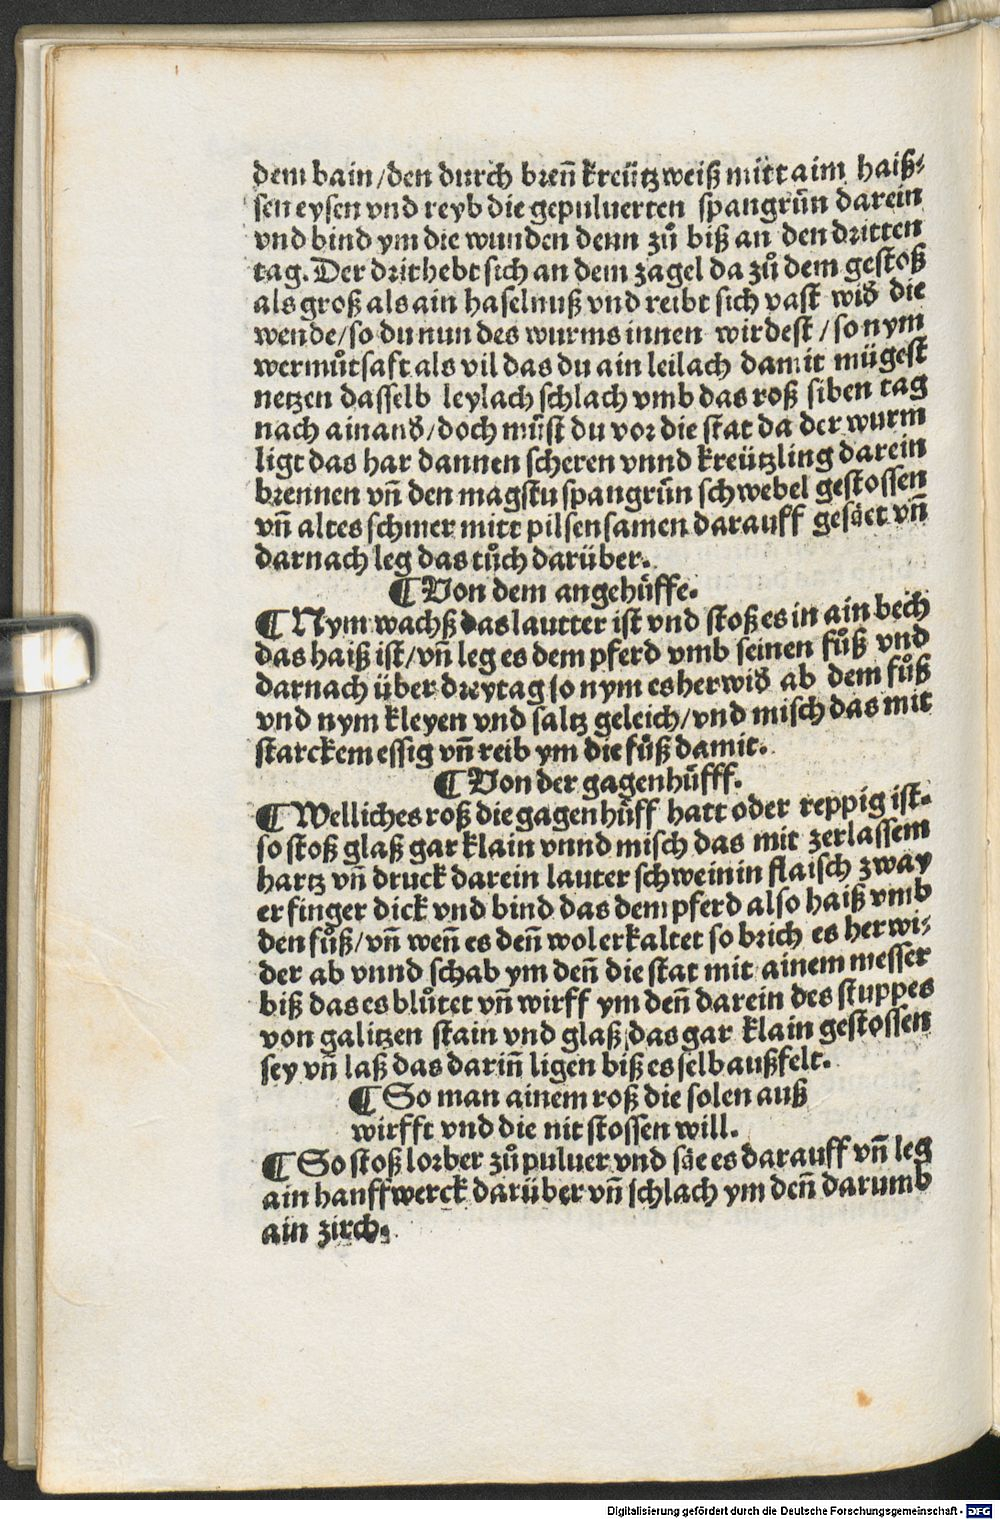 dem bain/den durch breñ kreützweiß mitt aim haiß⸗
sen eysen vnd reyb die gepuluerten spangrün darein
vnd bind ym die wunden denn zů biß an den dritten
tag. Der drit hebt sich an dem zagel da zů dem gestoß
als groß als ain haselnuß vnd reibt sich vast wid̕ die
wende/so du nun des wurms innen wirdest/so nym
wermůtsaft als vil das du ain leilach damit mügest
netzen dasselb leylach schlach vmb das roß siben tag
nach ainand̕/doch můst du vor die stat da der wurm
ligt das har dannen scheren vnnd kreützling darein
brennen vñ den magstu spangrün schwebel gestossen
vñ altes schmer mitt pilsensamen darauff gesäet vñ
darnach leg das tůch darüber.
¶ Von dem angehüffe.
¶ Nym wachß das lautter ist vnd stoß es in ain bech
das haiß ist/vñ leg es dem pferd vmb seinen fůß vnd
darnach über drey tag so nym es herwid̕ ab dem fůß
vnd nym kleyen vnd saltz geleich/vnd misch das mit
starckem essig vñ reib ym die füß damit.
¶ Von der gagenhüfff.
¶ Welliches roß die gagenhüff hatt oder reppig ist.
so stoß glaß gar klain vnnd misch das mit zerlassem
hartz vñ druck darein lauter schweinin flaisch zway
er finger dick vnd bind das dem pferd also haiß vmb
den fůß/vñ weñ es deñ wol erkaltet so brich es herwi⸗
der ab vnnd schab ym deñ die stat mit ainem messer
biß das es blůtet vñ wirff ym deñ darein des stuppes
von galitzen stain vnd glaß das gar klain gestossen
sey vñ laß das dariñ ligen biß es selb außfelt.
¶ So man ainem roß die solen auß
wirfft vnd die nit stossen will.
¶ So stoß lorber zů puluer vnd säe es darauff vñ leg
ain hanffwerck darüber vñ schlach ym deñ darumb
ain zirch.
Digitalisierung gefördert durch die Deutsche Forschungsgemeinschaft - DFG